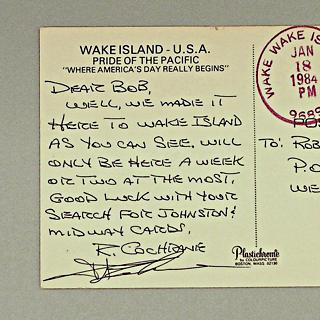 WAKE ISLAND - U.S.A.
PRIDE OF THE PACIFIC
"WHERE AMERICA'S DAY REALLY BEGINS"
DEAR BOB,
WELL, WE MADE IT
HERE TO WAKE ISLAND
AS YOU CAN SEE, WILL
ONLY BE HERE A WEEK
OR TWO AT THE MOST.
GOOD LUCK WITH YOUR
SEARCH FOR JOHNSTON &
MIDWAY CARDS.
R. COCHRANE
WAKE WAKE IS
JAN
18
1984
PM
TO: ROB
P.O
WE
Plastichrome
by COLOURPICTURE
BOSTON, MASS. 02130